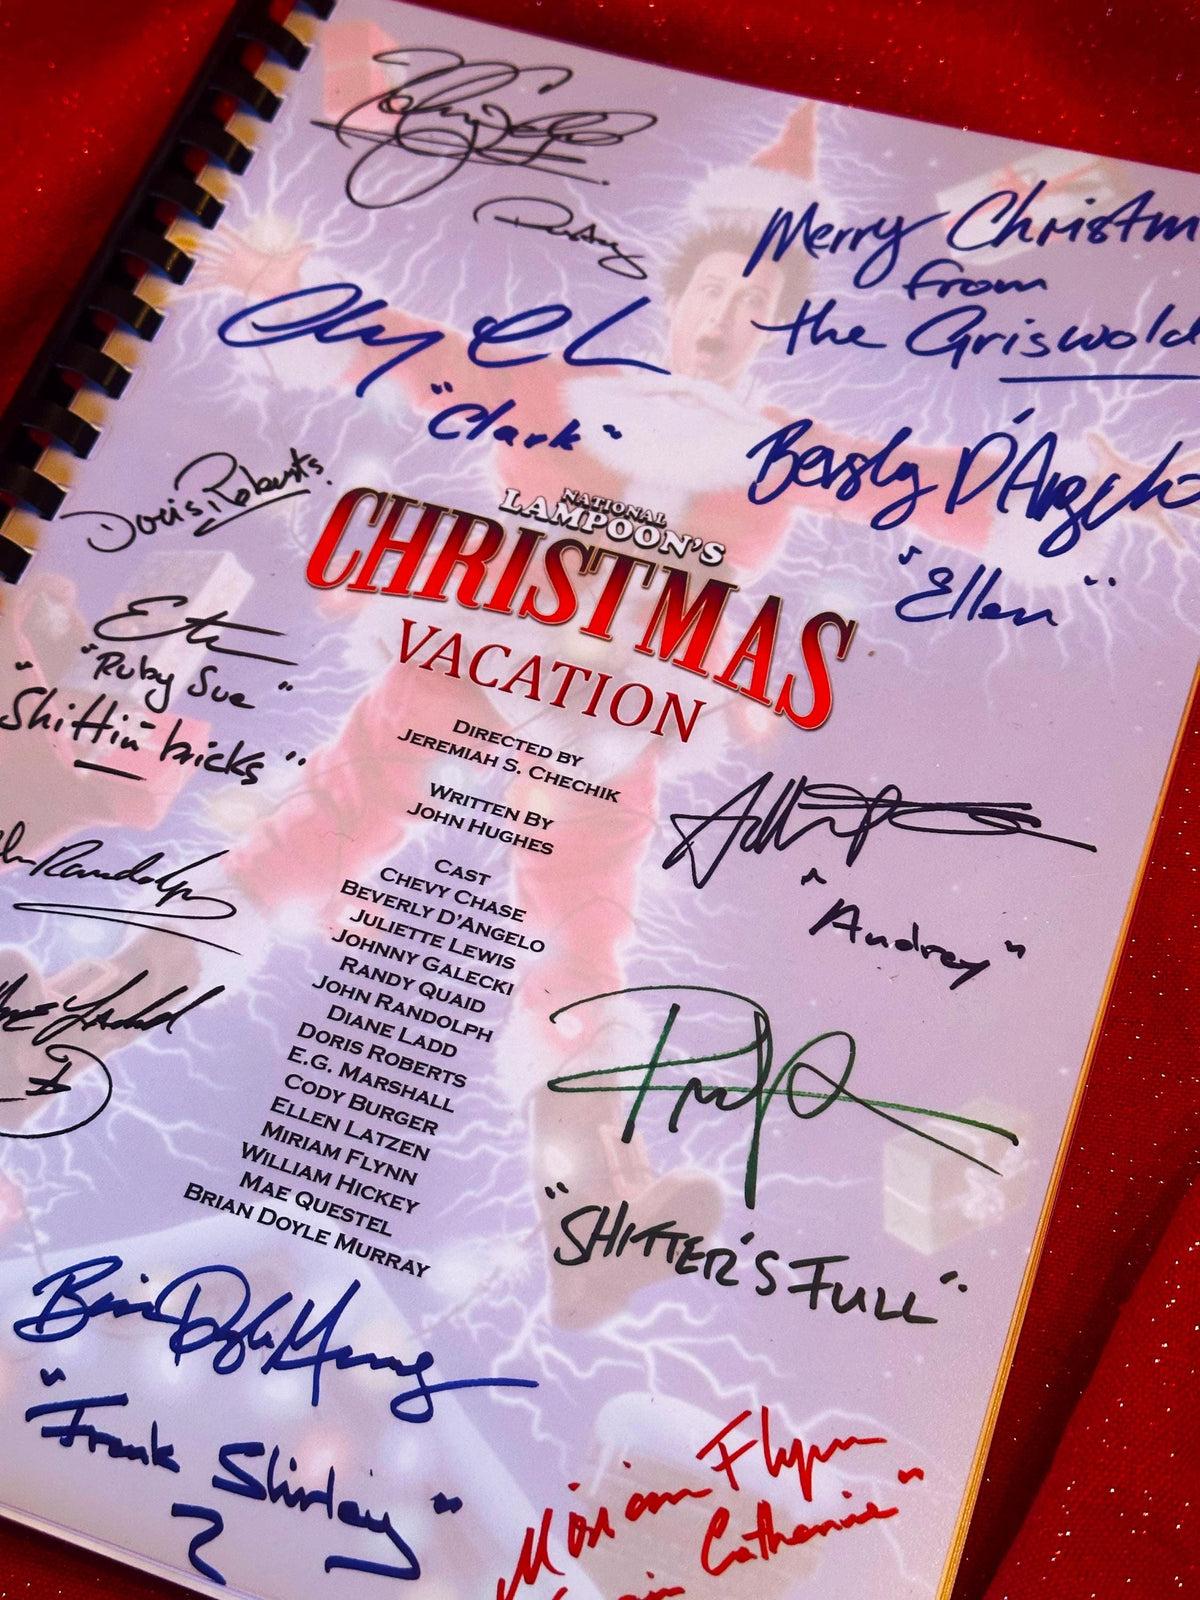 Merry Christm
from
the Griswold
"Clark"
Beverly D'Angelo
"Ellen"
Doris Roberts
NATIONAL
LAMPOON'S
CHRISTMAS
VACATION
"Ruby Sue"
"Shittin' bricks"
DIRECTED BY
JEREMIAH S. CHECHIK
WRITTEN BY
JOHN HUGHES
CAST
CHEVY CHASE
BEVERLY D'ANGELO
JULIETTE LEWIS
JOHNNY GALECKI
RANDY QUAID
JOHN RANDOLPH
DIANE LADD
DORIS ROBERTS
E.G. MARSHALL
CODY BURGER
ELLEN LATZEN
MIRIAM FLYNN
WILLIAM HICKEY
MAE QUESTEL
BRIAN DOYLE MURRAY
Randolph
"Audrey"
Ladd
"SHITTER'S FULL"
Brian Doyle Murray
"Frank Shirley"
Miriam Flynn
Catherine"